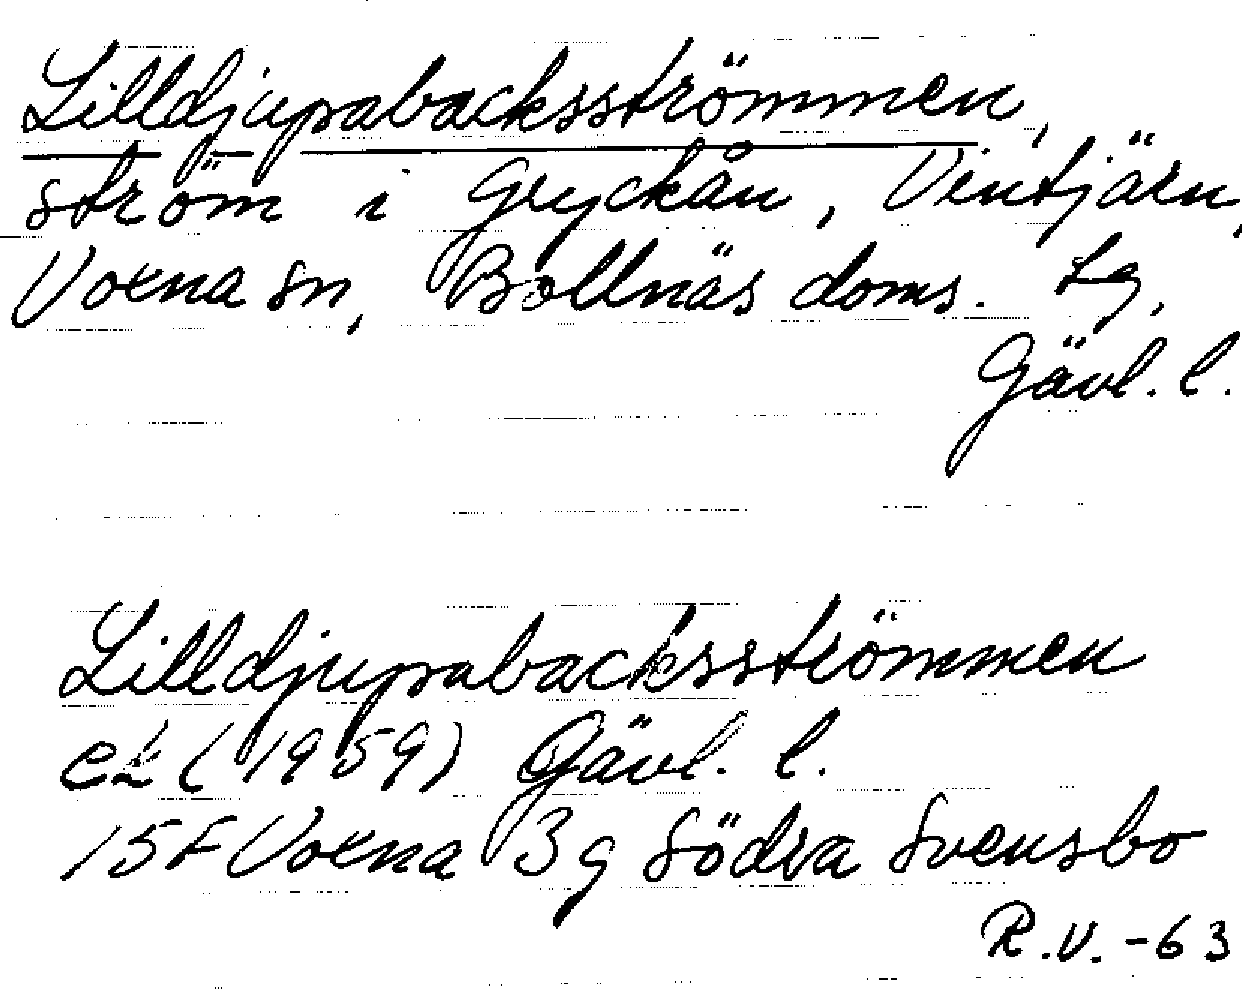 Lilldjupabacksströmmen,
ström i Gryckån, Vintjärn,
Voxna sn, Bollnäs doms. tg,
Gävl. l.
Lilldjupabacksströmmen
ek (1959) Gävl. l.
15F Voxna 3g Södra Svensbo
R.V. -63